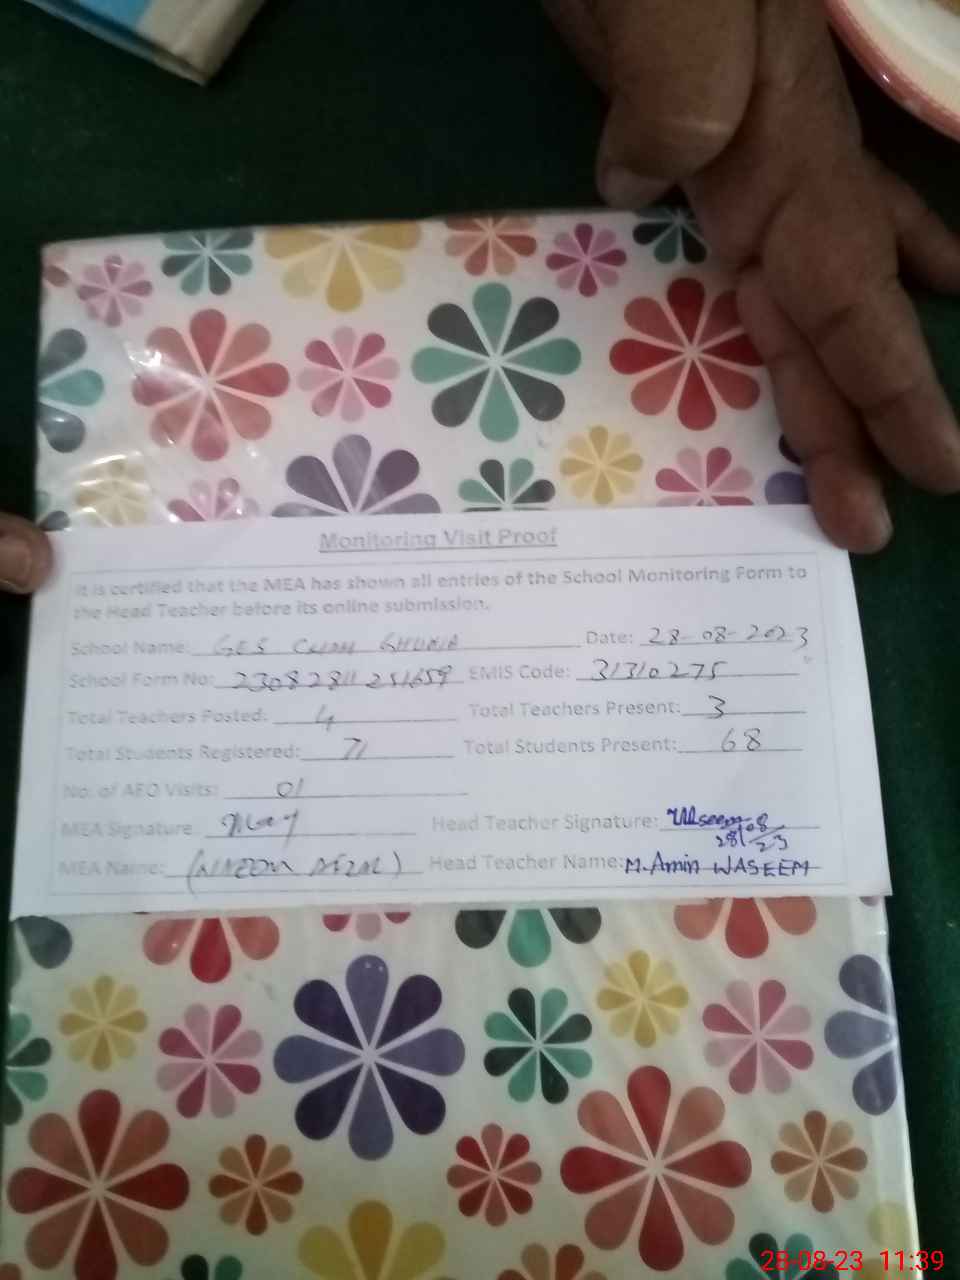 Monitoring Visit Proof
It is certified that the MEA has shown all entries of the School Monitoring Form to
the Head Teacher before its online submission.
School Name: GES Date: 28-08-2023
School Form No: EMIS Code: 31310275
Total Teachers Posted: 4 Total Teachers Present: 3
Total Students Registered: 71 Total Students Present: 68
No. of AEO Visits: 01
MEA Signature Head Teacher Signature: Waseem
28/08/23
MEA Name: Head Teacher Name: M. Amin WASEEM
28-08-23 11:39